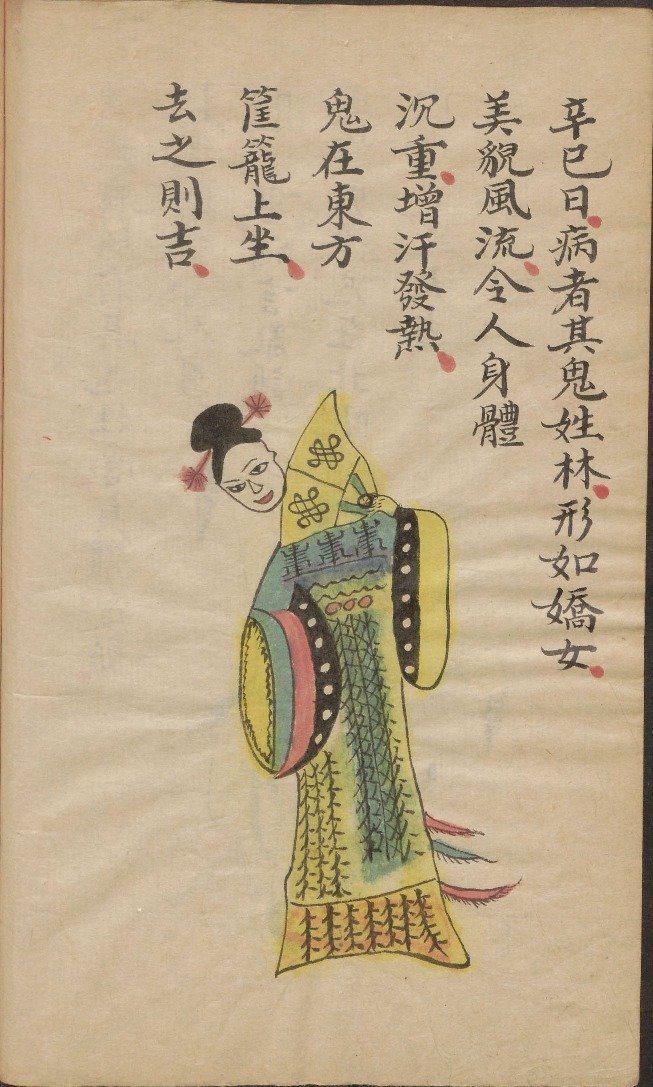 辛巳日病者其鬼姓林形如嬌女
美貌風流令人身體
沉重增汗發熱
鬼在東方
筐籠上坐
去之則吉